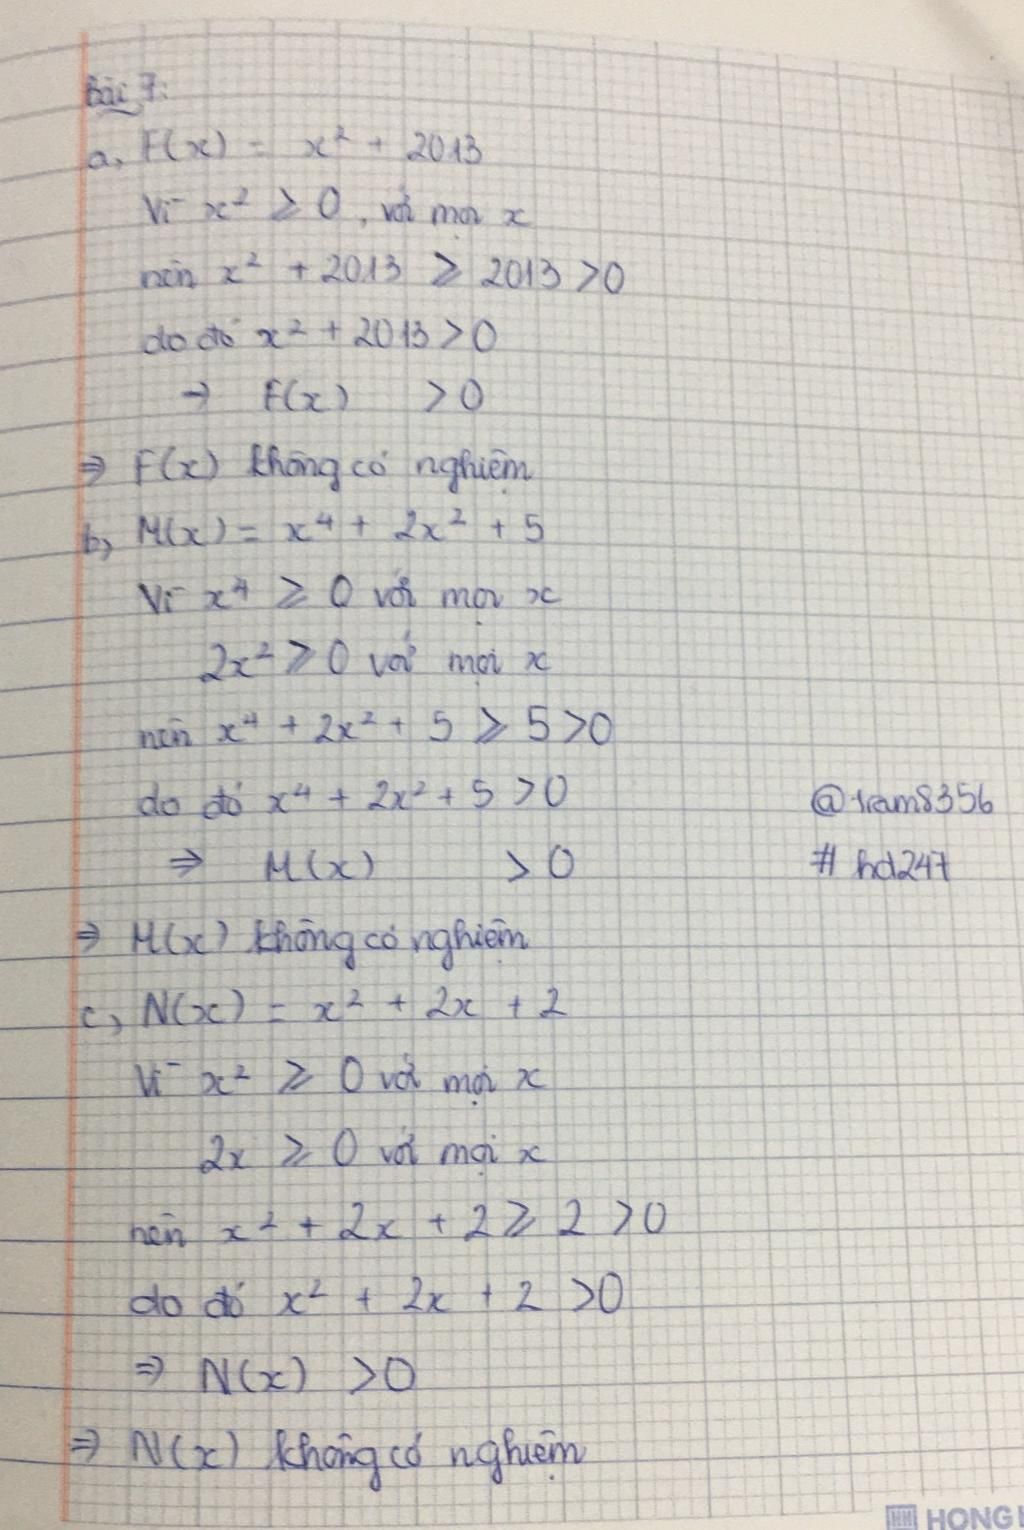 Bài 7:
a, F(x) = x² + 2013
Vì x² ≥ 0, với mọi x
nên x² + 2013 ≥ 2013 > 0
do đó x² + 2013 > 0
→ F(x) > 0
⇒ F(x) không có nghiệm
b, M(x) = x⁴ + 2x² + 5
Vì x⁴ ≥ 0 với mọi x
2x² ≥ 0 với mọi x
nên x⁴ + 2x² + 5 ≥ 5 > 0
do đó x⁴ + 2x² + 5 > 0
@tram8356
⇒ M(x) > 0
# hd247
⇒ M(x) không có nghiệm
c, N(x) = x² + 2x + 2
Vì x² ≥ 0 với mọi x
2x ≥ 0 với mọi x
nên x² + 2x + 2 ≥ 2 > 0
do đó x² + 2x + 2 > 0
⇒ N(x) > 0
⇒ N(x) không có nghiệm
HONG